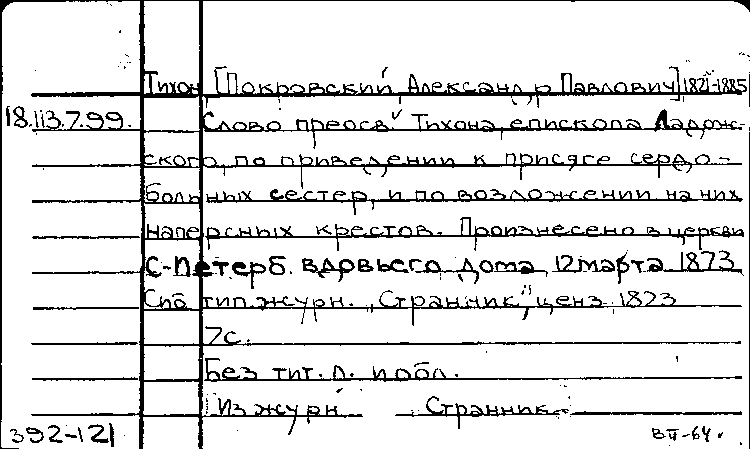 Тихон [Покровский, Александр Павлович] 1821-1885
18.113.7.99. Слово преосв. Тихона, епископа Ладож-
ского, по приведении к присяге сердо-
больных сестер, и по возложении на них
наперсных крестов. Произнесено в церкви
С-Петерб. вдовьего дома 12 марта 1873
Спб тип. журн. „Странник", ценз. 1873
7с.
Без тит. л. и обл.
Из журн Странник.
392-121 ВП-64.